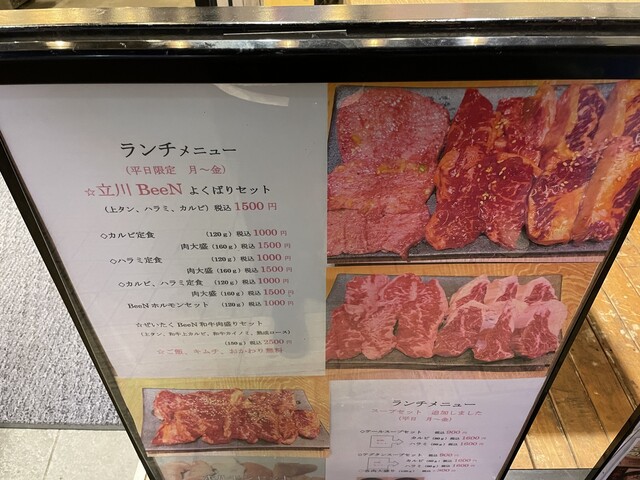 ランチメニュー
(平日限定 月～金)
☆立川 BeeN よくばりセット
(上タン、ハラミ、カルビ) 税込 1500 円
◇カルビ定食 (120g) 税込 1000 円
肉大盛 (160g) 税込 1500 円
◇ハラミ定食 (120g) 税込 1000 円
肉大盛 (160g) 税込 1500 円
◇カルビ、ハラミ定食 (120g) 税込 1000 円
肉大盛 (160g) 税込 1500 円
BeeN ホルモンセット (120g) 税込 1000 円
☆ぜいたく BeeN 和牛肉盛りセット
(上タン、和牛上カルビ、和牛カイノミ、熟成ロース)
(180g) 税込 2500 円
☆ご飯、キムチ、おかわり無料
ランチメニュー
スープセット 追加しました
(平日 月～金)
スープセット 税込 900 円
カルビ
ハラミ
スープセット 税込
カルビ
ハラミ